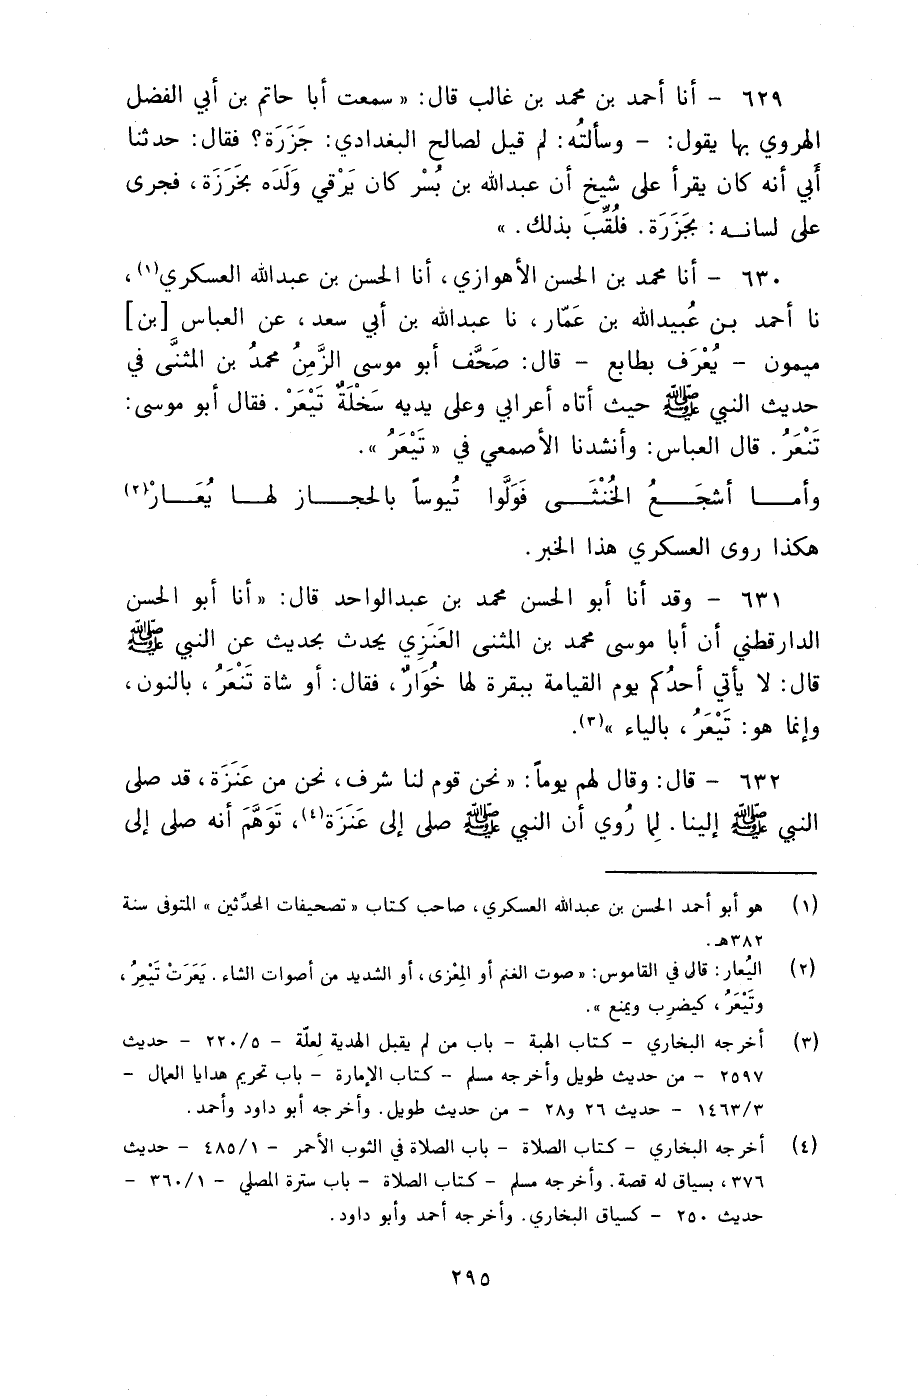 ٦٢٩ - أنا أحمد بن محمد بن غالب قال: « سمعت أبا حاتم بن أبي الفضل
الهروي بها يقول: - وسألتُه: لم قيل لصالح البغدادي: جَزَرَة؟ فقال: حدثنا
أَبي أنه كان يقرأ على شيخ أن عبدالله بن بُسْر كان يَرْقي وَلَدَه بخَرَزَة، فجرى
على لسانـه: بجَزَرَة. فلُقِّبَ بذلك. »
٦٣٠ - أنا محمد بن الحسن الأهوازي، أنا الحسن بن عبدالله العسكري(١)،
نا أحمد بـن عُبيدالله بن عَمّار، نا عبدالله بن أبي سعد، عن العباس [بن]
ميمون - يُعْرَف بطابع - قال: صَحَّف أبو موسى الزَّمِنُ محمدُ بن المثنَّى في
حديث النبي ﷺ حيث أتاه أعرابي وعلى يديه سَخْلَةٌ تَيْعَرْ. فقال أبو موسى:
تَنْعَرُ. قال العباس: وأنشدنا الأصمعي في « تَيْعَرُ ».
وأمـــا أشجَـــعُ الخُنْثَـــى فَوَلَّوا تُيوساً بالحجـــاز لهـــا يُعَـــارْ(٢)
هكذا روى العسكري هذا الخبر.
٦٣١ - وقد أنا أبو الحسن محمد بن عبدالواحد قال: « أنا أبو الحسن
الدارقطني أن أبا موسى محمد بن المثنى العَنَزي يحدث بحديث عن النبي ﷺ
قال: لا يأتي أحدُكم يوم القيامة ببقرة لها خُوَارٌ، فقال: أو شاة تَنْعَرُ، بالنون،
وإنما هو: تَيْعَرُ، بالياء »(٣).
٦٣٢ - قال: وقال لهم يوماً: « نحن قوم لنا شرف، نحن من عَنَزَة، قد صلى
النبي ﷺ إلينا. لِما رُوي أن النبي ﷺ صلى إلى عَنَزَة(٤)، تَوَهَّمَ أنه صلى إلى
(١) هو أبو أحمد الحسن بن عبدالله العسكري، صاحب كتاب « تصحيفات المحدِّثين » المتوفى سنة
٣٨٢هـ.
(٢) اليُعار: قال في القاموس: « صوت الغنم أو المِعْزى، أو الشديد من أصوات الشاء. يَعَرَتْ تَيْعِرُ،
وتَيْعَرُ، كيضرِب ويمنع ».
(٣) أخرجه البخاري - كتاب الهبة - باب من لم يقبل الهدية لِعلّة - ٢٢٠/٥ - حديث
٢٥٩٧ - من حديث طويل وأخرجه مسلم - كتاب الإمارة - باب تحريم هدايا العمال -
١٤٦٣/٣ - حديث ٢٦ و٢٨ - من حديث طويل. وأخرجه أبو داود وأحمد.
(٤) أخرجه البخاري - كتاب الصلاة - باب الصلاة في الثوب الأحمر - ٤٨٥/١ - حديث
٣٧٦، بسياق له قصة. وأخرجه مسلم - كتاب الصلاة - باب سترة المصلي - ٣٦٠/١ -
حديث ٢٥٠ - كسياق البخاري. وأخرجه أحمد وأبو داود.
٢٩٥